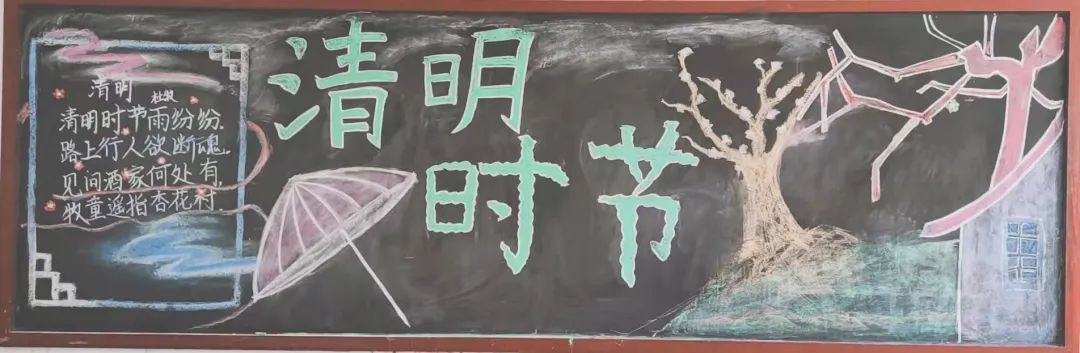 清明
杜牧
清明时节雨纷纷.
路上行人欲断魂.
见问酒家何处有.
牧童遥指杏花村.
清明
时节